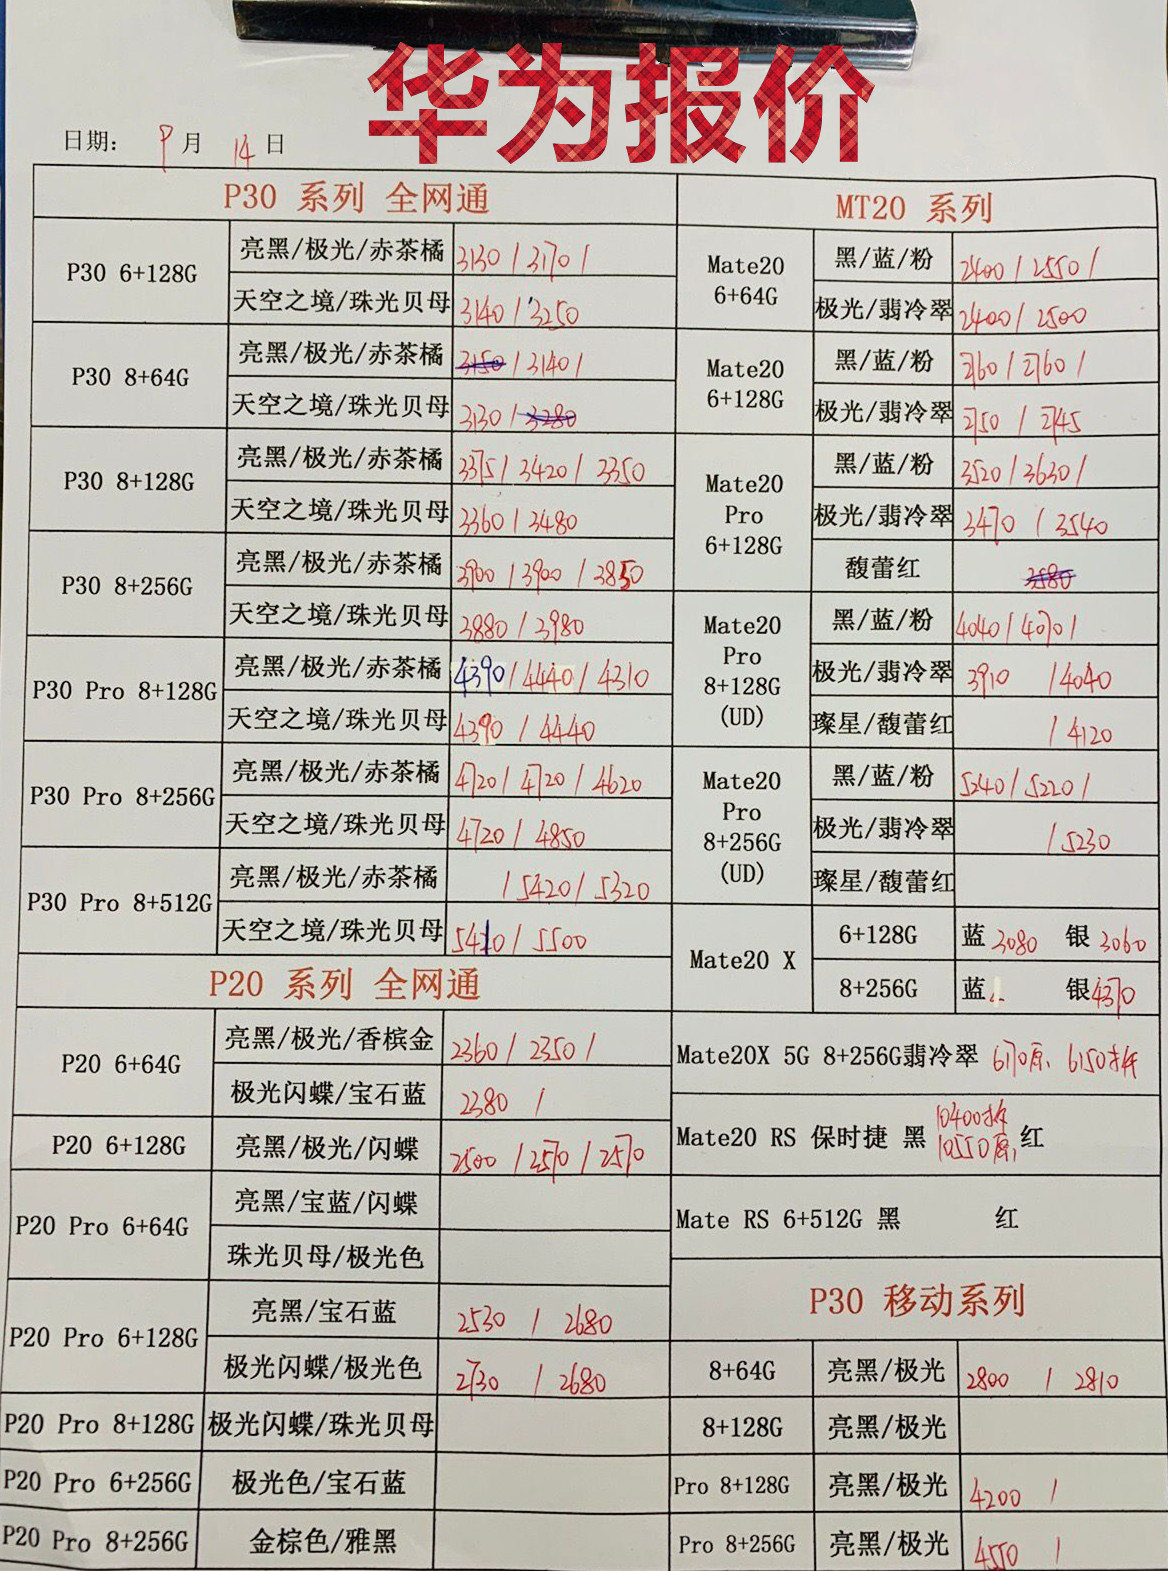 华为报价
日期: 9月 14日
P30 系列 全网通
P30 6+128G 亮黑/极光/赤茶橘 3130 / 3170 /
天空之境/珠光贝母 3140 / 3250
P30 8+64G 亮黑/极光/赤茶橘 3150 / 3140 /
天空之境/珠光贝母 3130 / 3280
P30 8+128G 亮黑/极光/赤茶橘 3375 / 3420 / 3350
天空之境/珠光贝母 3360 / 3480
P30 8+256G 亮黑/极光/赤茶橘 3900 / 3900 / 3850
天空之境/珠光贝母 3880 / 3980
P30 Pro 8+128G 亮黑/极光/赤茶橘 4390 / 4440 / 4310
天空之境/珠光贝母 4390 / 4440
P30 Pro 8+256G 亮黑/极光/赤茶橘 4720 / 4720 / 4620
天空之境/珠光贝母 4720 / 4850
P30 Pro 8+512G 亮黑/极光/赤茶橘 / 5420 / 5320
天空之境/珠光贝母 5410 / 5500
P20 系列 全网通
P20 6+64G 亮黑/极光/香槟金 2360 / 2350 /
极光闪蝶/宝石蓝 2380 /
P20 6+128G 亮黑/极光/闪蝶 2500 / 2570 / 2570
P20 Pro 6+64G 亮黑/宝蓝/闪蝶
珠光贝母/极光色
P20 Pro 6+128G 亮黑/宝石蓝 2530 / 2680
极光闪蝶/极光色 2730 / 2680
P20 Pro 8+128G 极光闪蝶/珠光贝母
P20 Pro 6+256G 极光色/宝石蓝
P20 Pro 8+256G 金棕色/雅黑
MT20 系列
Mate20 6+64G 黑/蓝/粉 2400 / 2550 /
极光/翡冷翠 2400 / 2500
Mate20 6+128G 黑/蓝/粉 2760 / 2760 /
极光/翡冷翠 2750 / 2745
Mate20 Pro 6+128G 黑/蓝/粉 3520 / 3630 /
极光/翡冷翠 3470 / 3540
馥蕾红 3580
Mate20 Pro 8+128G (UD) 黑/蓝/粉 4040 / 4070 /
极光/翡冷翠 3910 / 4040
璨星/馥蕾红 / 4120
Mate20 Pro 8+256G (UD) 黑/蓝/粉 5240 / 5220 /
极光/翡冷翠 / 5230
璨星/馥蕾红
Mate20 X 6+128G 蓝 3080 银 3060
8+256G 蓝 银 4370
Mate20X 5G 8+256G翡冷翠 6170原 6150拆
Mate20 RS 保时捷 黑 10400拆 10550原 红
Mate RS 6+512G 黑 红
P30 移动系列
8+64G 亮黑/极光 2800 / 2810
8+128G 亮黑/极光
Pro 8+128G 亮黑/极光 4200 /
Pro 8+256G 亮黑/极光 4550 /